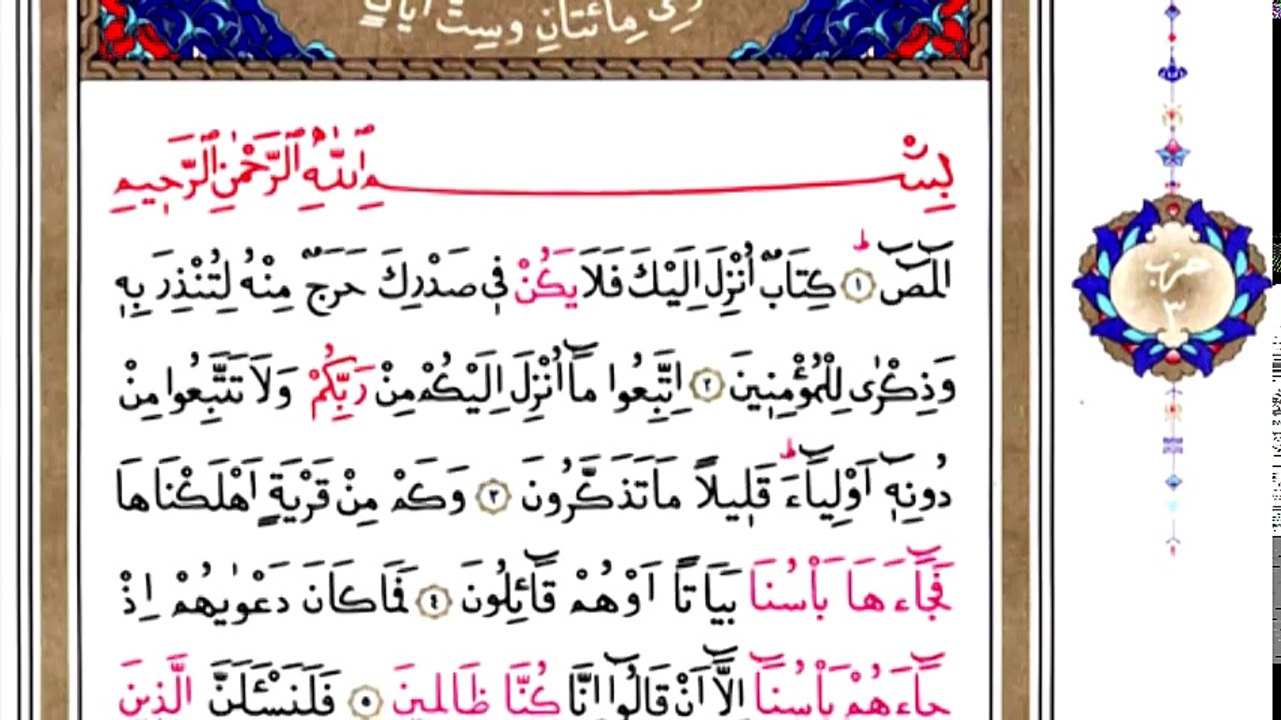 وهي مائتان وست آيات
بِسْمِ اللّٰهِ الرَّحْمٰنِ الرَّحِيمِ
الٓمٓصٓ ۚ ﴿١﴾ كِتَابٌ اُنْزِلَ اِلَيْكَ فَلَا يَكُنْ فِي صَدْرِكَ حَرَجٌ مِنْهُ لِتُنْذِرَ بِهِ
وَذِكْرٰى لِلْمُؤْمِنِينَ ﴿٢﴾ اِتَّبِعُوا مَٓا اُنْزِلَ اِلَيْكُمْ مِنْ رَبِّكُمْ وَلَا تَتَّبِعُوا مِنْ
دُونِهٓ اَوْلِيَٓاءَ ۜ قَلِيلًا مَا تَذَكَّرُونَ ﴿٣﴾ وَكَمْ مِنْ قَرْيَةٍ اَهْلَكْنَاهَا
فَجَٓاءَهَا بَأْسُنَا بَيَاتًا اَوْ هُمْ قَٓائِلُونَ ﴿٤﴾ فَمَا كَانَ دَعْوٰيهُمْ اِذْ
جَٓاءَهُمْ بَأْسُنَٓا اِلَّٓا اَنْ قَالُٓوا اِنَّا كُنَّا ظَالِمِينَ ﴿٥﴾ فَلَنَسْـَٔلَنَّ الَّذِينَ
حزب
٣